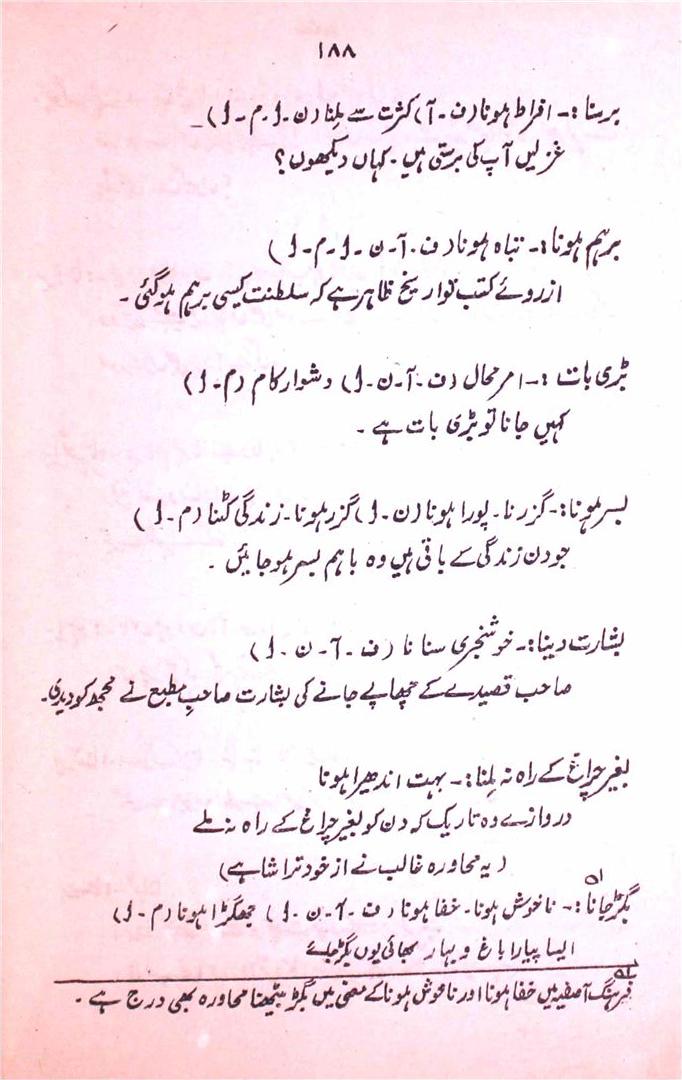 ۱۸۸
برسنا :- افراط ہونا (ف۔آ) کثرت سے ملنا (ن۔ا۔م۔ا)۔
غزلیں آپ کی برستی ہیں۔ کہاں دیکھوں؟
برہم ہونا :- تباہ ہونا (ف۔آ۔ن۔ا۔م۔ا)
ازروئے کتب تواریخ ظاہر ہے کہ سلطنت کیسی برہم ہوگئی۔
بڑی بات :- امر محال (ف۔آ۔ن۔ا) دشوار کام (م۔ا)
کہیں جانا تو بڑی بات ہے۔
بسر ہونا :- گزرنا۔ پورا ہونا (ن۔ا) گزر ہونا۔ زندگی کٹنا (م۔ا)
جو دن زندگی کے باقی ہیں وہ باہم بسر ہو جائیں۔
بشارت دینا :- خوشخبری سنانا (ف۔آ۔ن۔ا)
صاحب قصیدے کے چھاپے جانے کی بشارت صاحبِ مطبع نے مجھ کو دیدی۔
بغیر چراغ کے راہ نہ ملنا :- بہت اندھیرا ہونا
دروازے وہ تاریک کہ دن کو بغیر چراغ کے راہ نہ ملے
(یہ محاورہ غالب نے از خود تراشا ہے)
بگڑ جانا۱ :- ناخوش ہونا۔ خفا ہونا (ف۔آ۔ن۔ا) جھگڑا ہونا (م۔ا)
ایسا پیارا باغ و بہار بھائی یوں بگڑ جائے
۱ فرہنگ آصفیہ میں خفا ہونا اور ناخوش ہونا کے معنی میں بگڑ بیٹھنا محاورہ بھی درج ہے۔